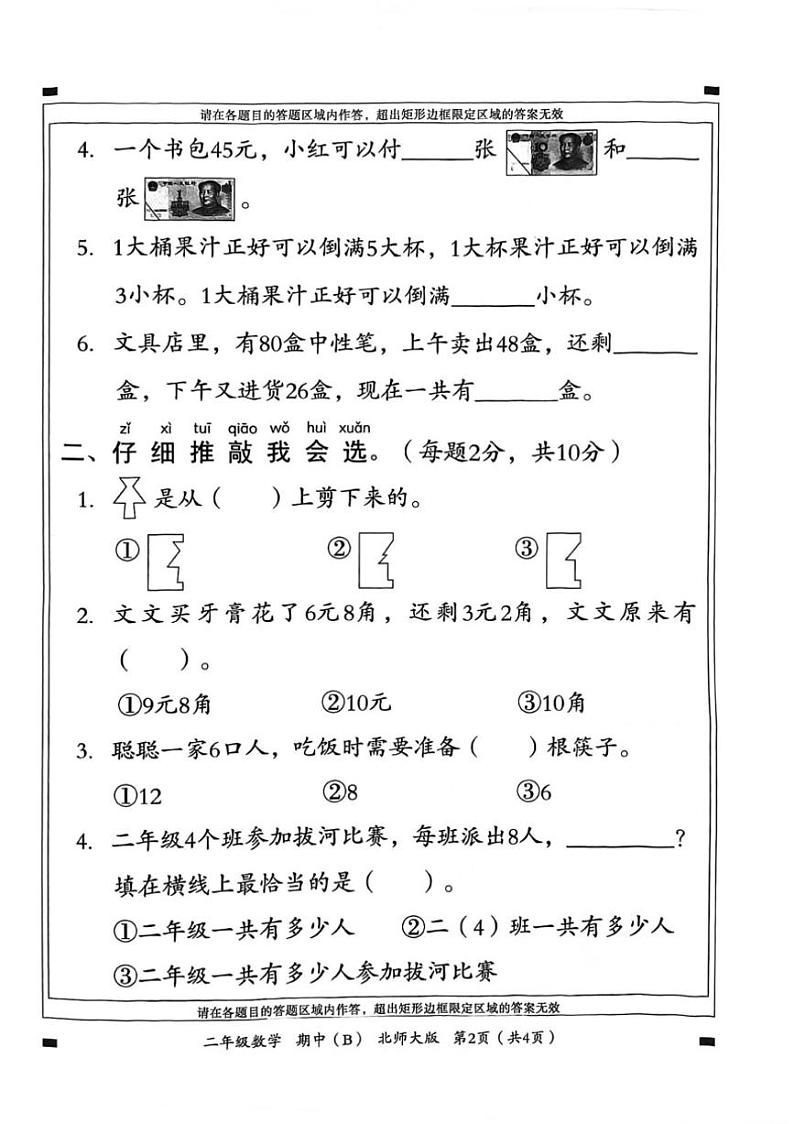 请在各题目的答题区域内作答，超出矩形边框限定区域的答案无效
4. 一个书包45元，小红可以付______张 和______
张 。
5. 1大桶果汁正好可以倒满5大杯，1大杯果汁正好可以倒满
3小杯。1大桶果汁正好可以倒满_______小杯。
6. 文具店里，有80盒中性笔，上午卖出48盒，还剩_______
盒，下午又进货26盒，现在一共有_______盒。
zǐ xì tuī qiāo wǒ huì xuǎn
二、仔细推敲我会选。（每题2分，共10分）
1. 是从（　　）上剪下来的。
① ② ③
2. 文文买牙膏花了6元8角，还剩3元2角，文文原来有
（　　）。
①9元8角 ②10元 ③10角
3. 聪聪一家6口人，吃饭时需要准备（　　）根筷子。
①12 ②8 ③6
4. 二年级4个班参加拔河比赛，每班派出8人，_________？
填在横线上最恰当的是（　　）。
①二年级一共有多少人 ②二（4）班一共有多少人
③二年级一共有多少人参加拔河比赛
请在各题目的答题区域内作答，超出矩形边框限定区域的答案无效
二年级数学 期中（B） 北师大版 第2页（共4页）